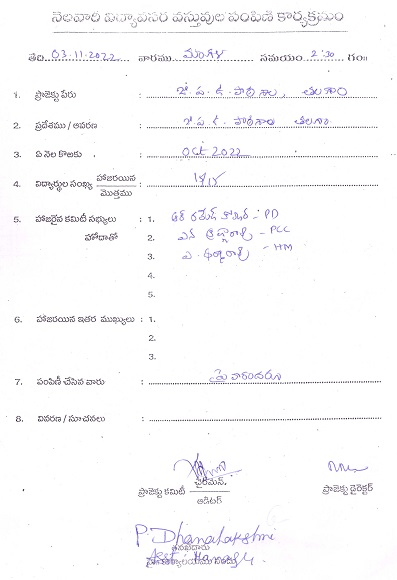 నెలవారి విద్యావసర వస్తువుల పంపిణి కార్యక్రమం
తేది 03.11.2022 వారము మంగళ సమయం 2.30 గం॥
1. ప్రాజెక్టు పేరు : జి.ప.ఉ. పాఠశాల, తలగాం
2. ప్రదేశము / ఆవరణ : జి.ప.ఉ. పాఠశాల తలగాం
3. ఏ నెల కొఱకు : Oct 2022
4. విద్యార్థుల సంఖ్య హాజరయిన / మొత్తము : 18/18
5. హాజరైన కమిటీ సభ్యులు : 1. ఆర్ రమేష్ కుమార్ - PD
హోదాతో 2. ఎన్ - PCC
3. ఎ. - HM
4.
5.
6. హాజరయిన ఇతర ముఖ్యులు : 1.
2.
3.
7. పంపిణీ చేసిన వారు : పై వారందరూ
8. వివరణ / సూచనలు :
ప్రాజెక్టు కమిటీ చైర్‌మెన్. / ఆడిటర్ ప్రాజెక్టు డైరెక్టర్
P. Dhanalakshmi
Asst. Manager